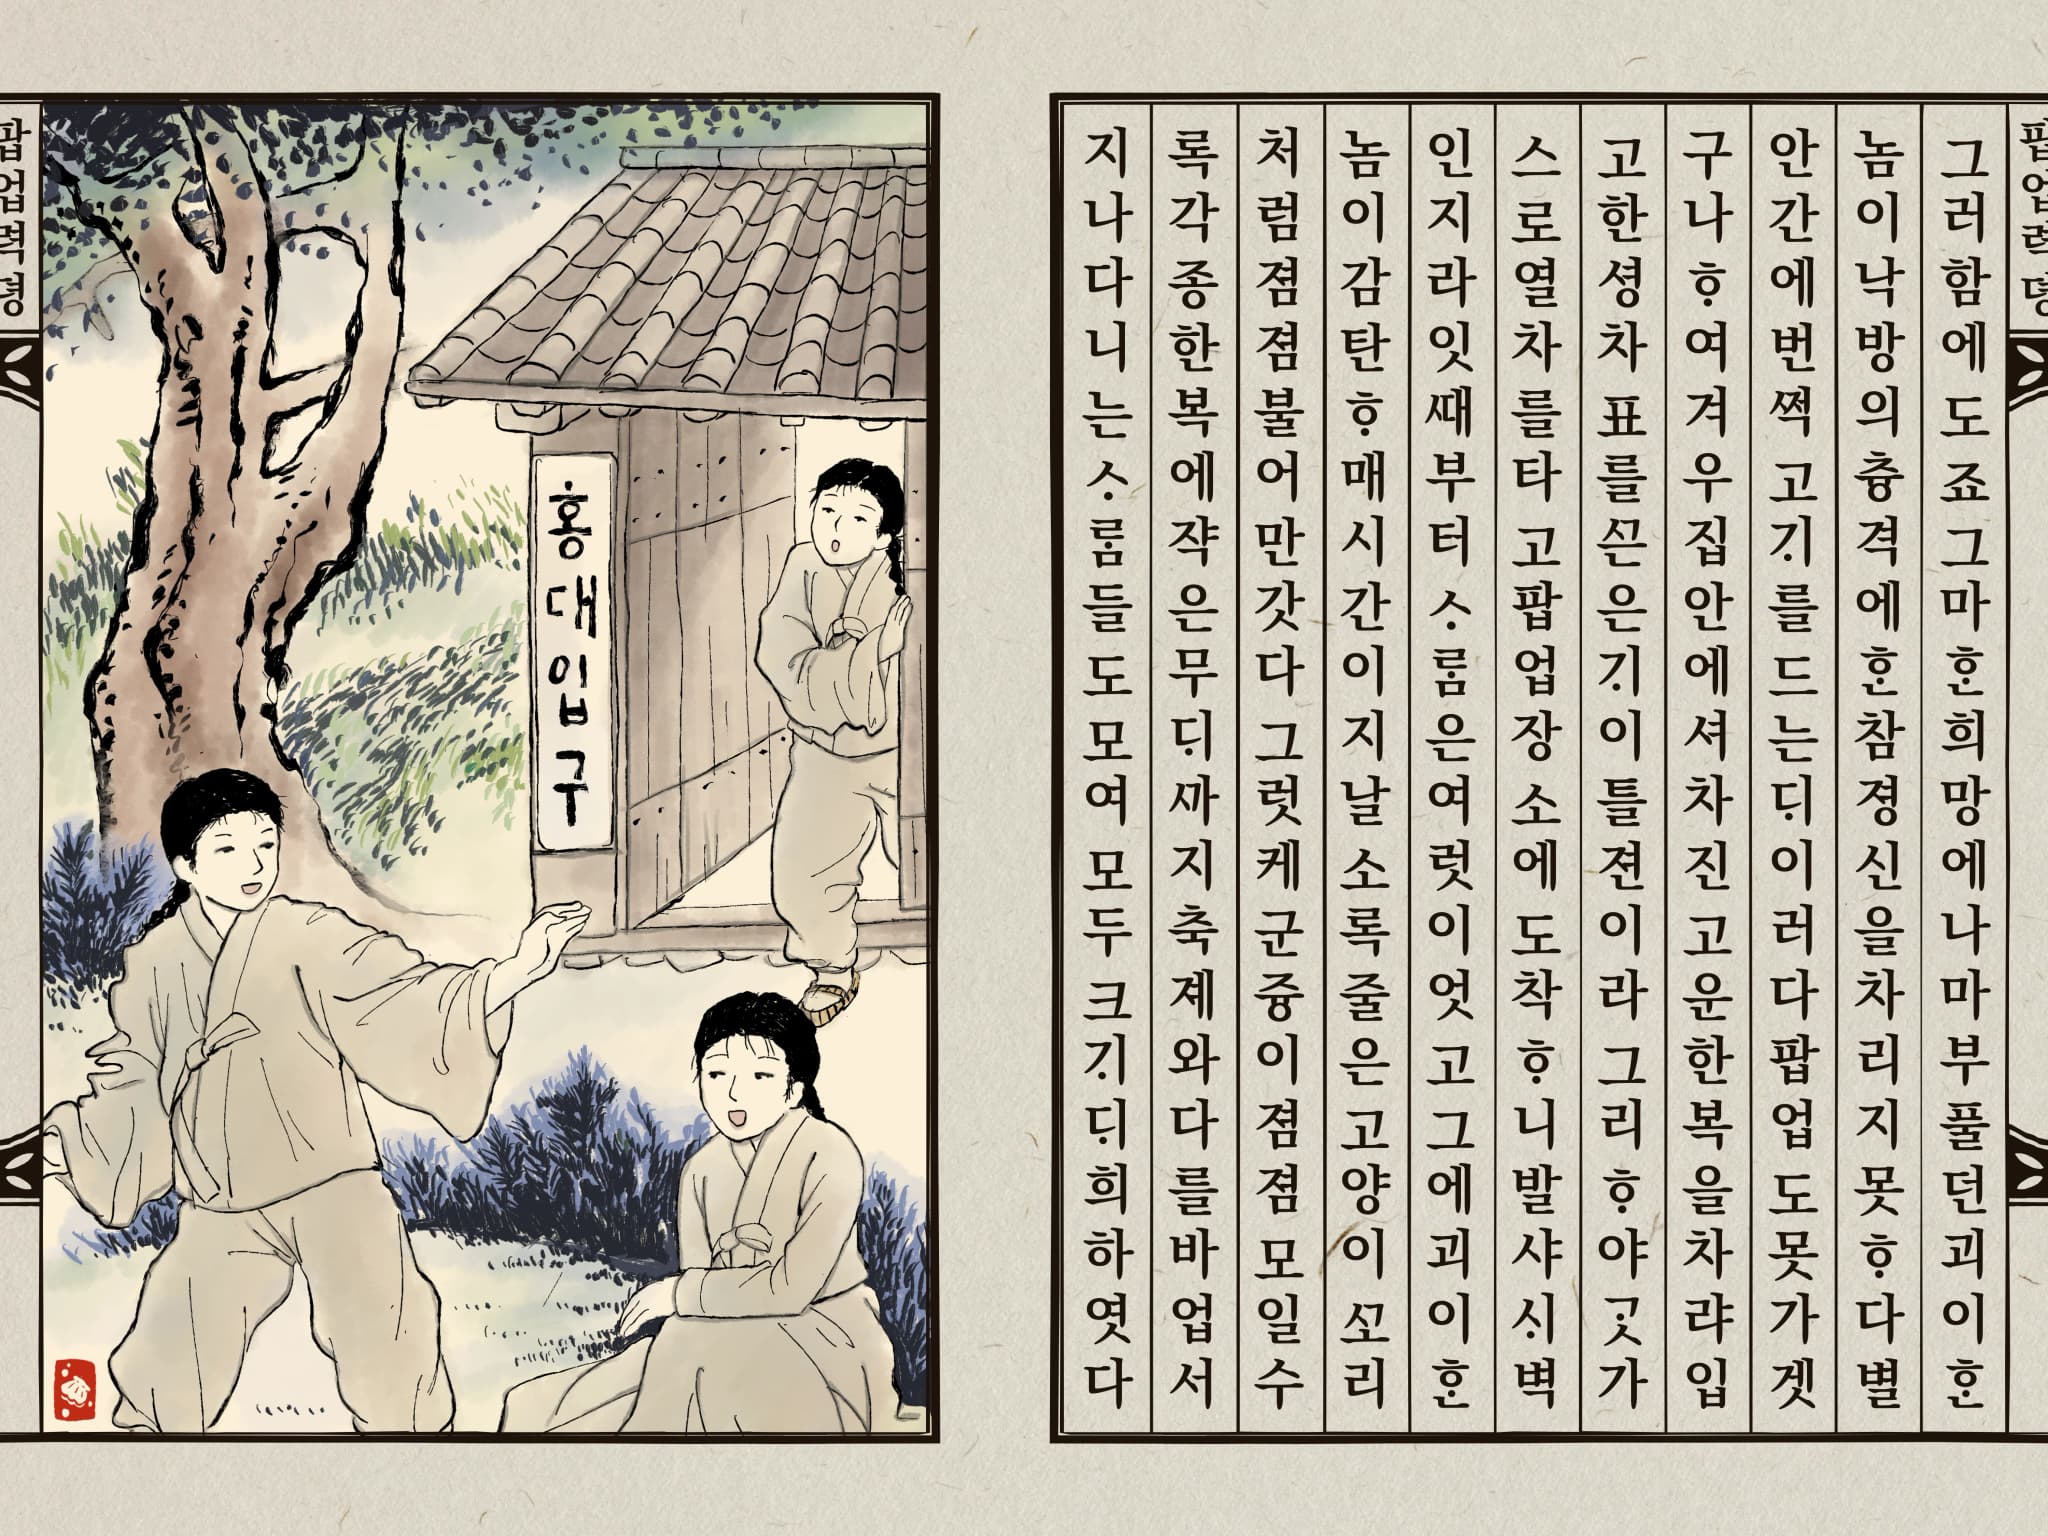 팝업력뎡
그러함에도죠그마ᄒᆞᆫ희망에나마부풀던괴이ᄒᆞᆫ
놈이낙방의츙격에ᄒᆞᆫ참졍신을차리지못ᄒᆞ다별
안간에번쩍고ᄀᆡ를드는ᄃᆡ이러다팝업도못가겟
구나ᄒᆞ여겨우집안에셔차진고운한복을차랴입
고한셩차표를ᄭᅳᆫ은ᄀᆡ이틀젼이라그리ᄒᆞ야ᄀᆞᆺ가
스로열차를타고팝업장소에도착ᄒᆞ니발샤ᄉᆡ벽
인지라잇ᄯᅢ부터ᄉᆞᄅᆞᆷ은여럿이엇고그에괴이ᄒᆞᆫ
놈이감탄ᄒᆞ매시간이지날소록줄은고양이ᄭᅩ리
처럼졈졈불어만갓다그럿케군즁이졈졈모일수
록각종한복에쟉은무ᄃᆡᄭᅡ지축졔와다를바업서
지나다니는ᄉᆞᄅᆞᆷ들도모여모두크ᄀᆡᄃᆡ희하엿다
홍대입구
팝업력뎡